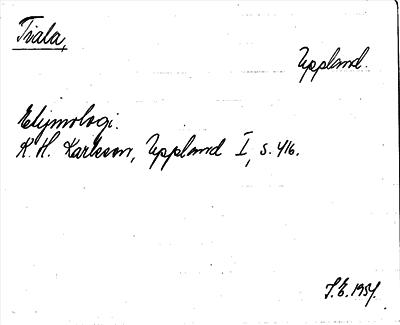 Tvala,
Uppland.
Etymologi.
K.H. Karlsson, Uppland I, s. 416.
J.E. 1954.